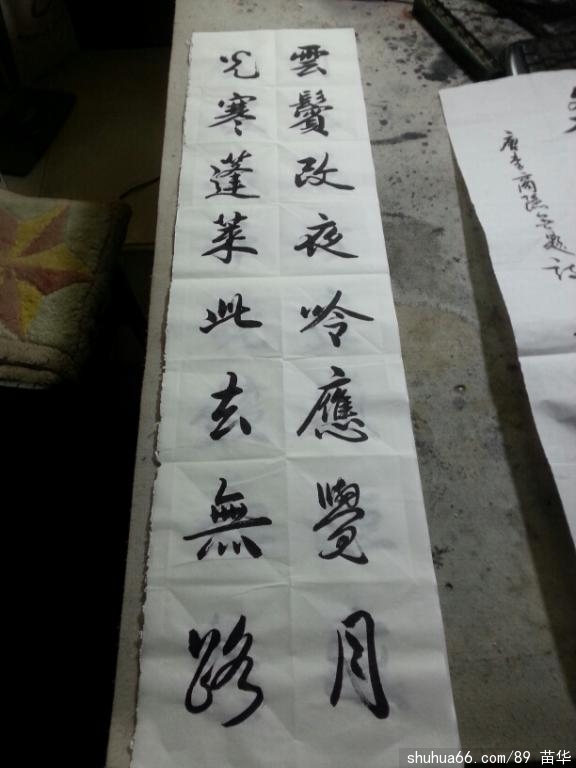 雲鬢改夜吟應覺月
光寒蓬萊此去無路
唐李商隐無題詩
shuhua66.com/89 苗华